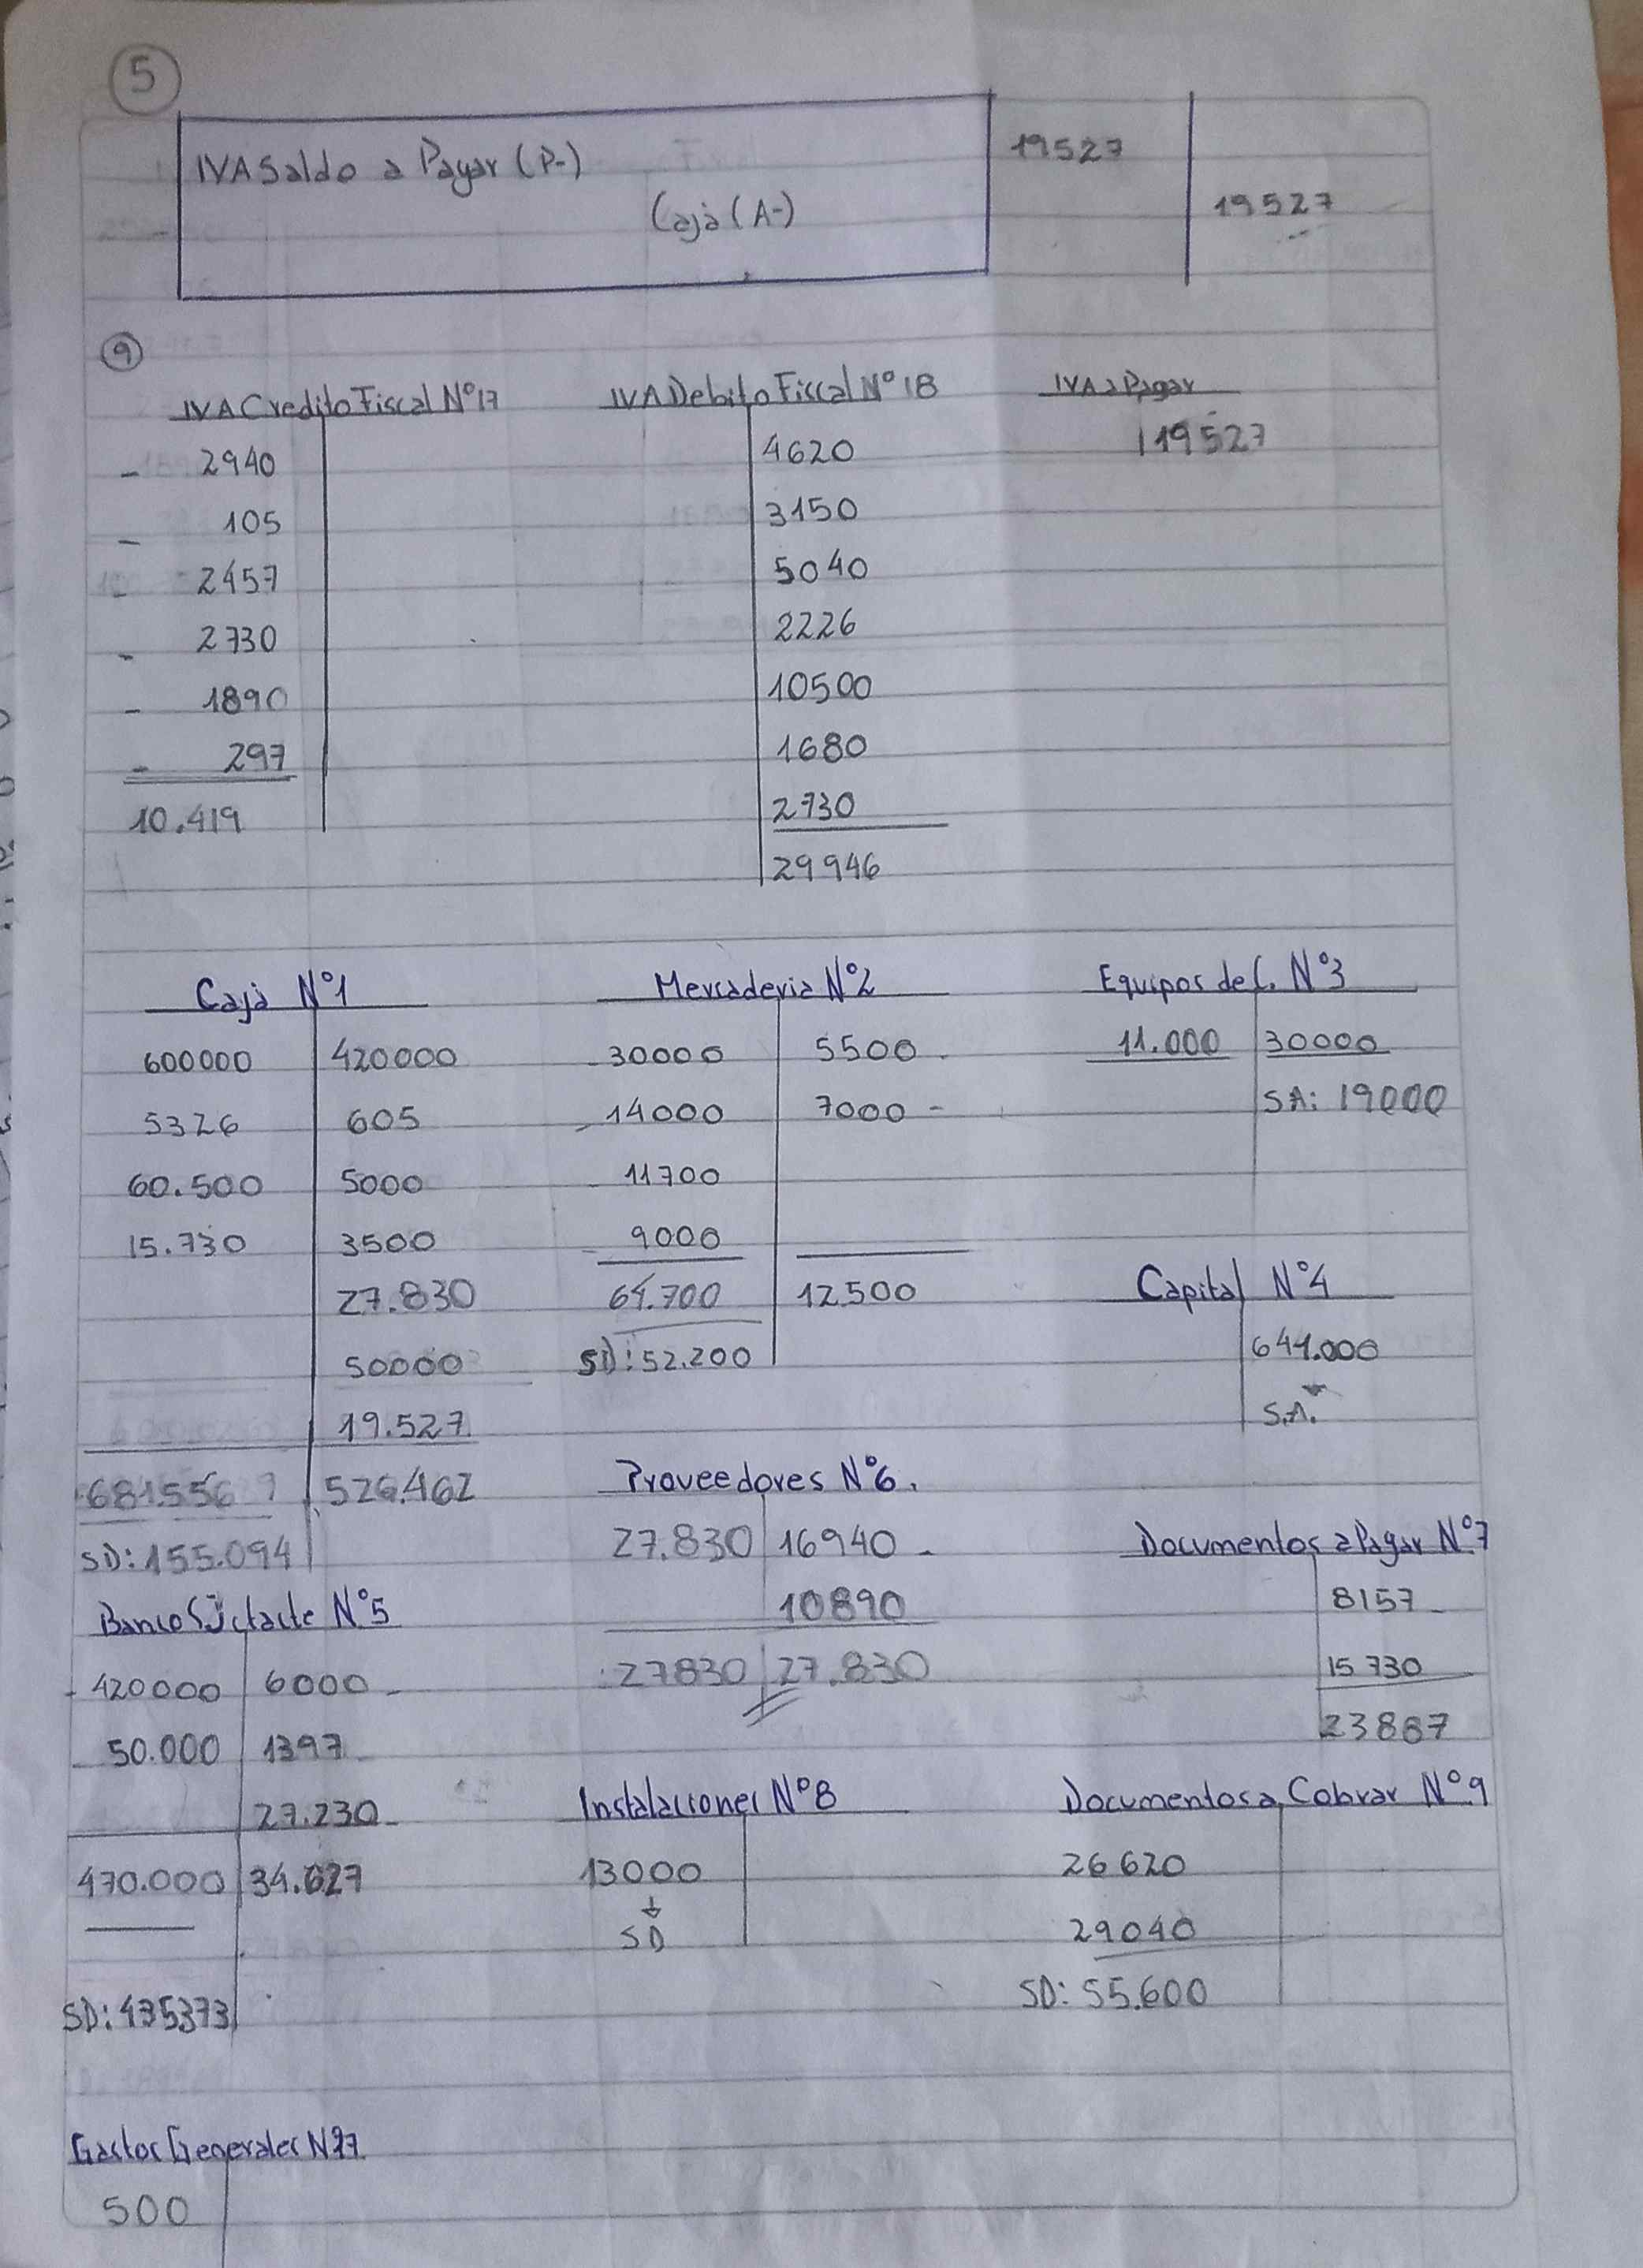 5
IVA Saldo a Pagar (P-) 19527
Caja (A-) 19527
9
IVA Credito Fiscal N°17 IVA Debito Fiscal N°18 IVA a Pagar
- 2940 4620 19527
- 105 3150
- 2457 5040
- 2730 2226
- 1890 10500
- 297 1680
10.419 2730
29946
Caja N°1 Mercaderia N°2 Equipos de C. N°3
600000 420000 30000 5500 11.000 30000
5326 605 14000 7000 SA: 19000
60.500 5000 11700
15.730 3500 9000
27.830 64.700 12.500 Capital N°4
50000 SD: 52.200 641.000
19.527 S.A.
681.556 526.462 Proveedores N°6
SD: 155.094 27.830 16940 Documentos a Pagar N°7
10890 8157
Banco N°5 27830 27.830 15730
420000 6000 23887
50.000 1397
27.230 Instalaciones N°8 Documentos a Cobrar N°9
470.000 34.627 13000 26620
SD 29040
SD: 435373 SD: 55.600
Gastos Generales
500